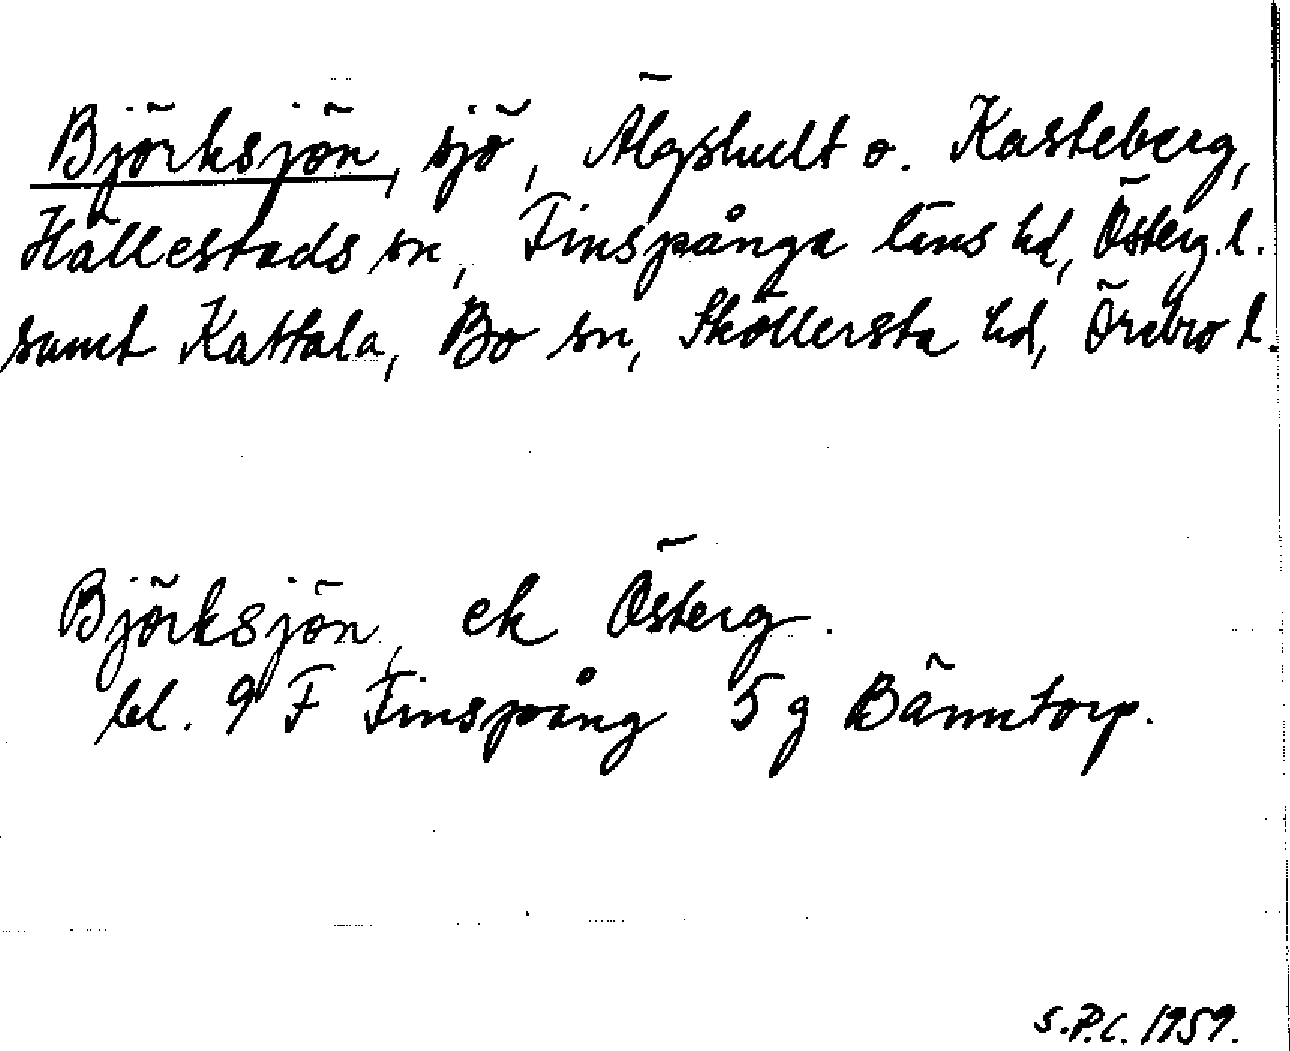 Björksjön, sjö, Älgshult o. Kasteberg,
Hällestads sn, Finspånga läns hd, Österg. l.
samt Kattala, Bo sn, Sköllersta hd, Örebro l.
Björksjön, ek Österg.
bl. 9 F Finspång 5 g Bänntorp.
S.P.C. 1959.